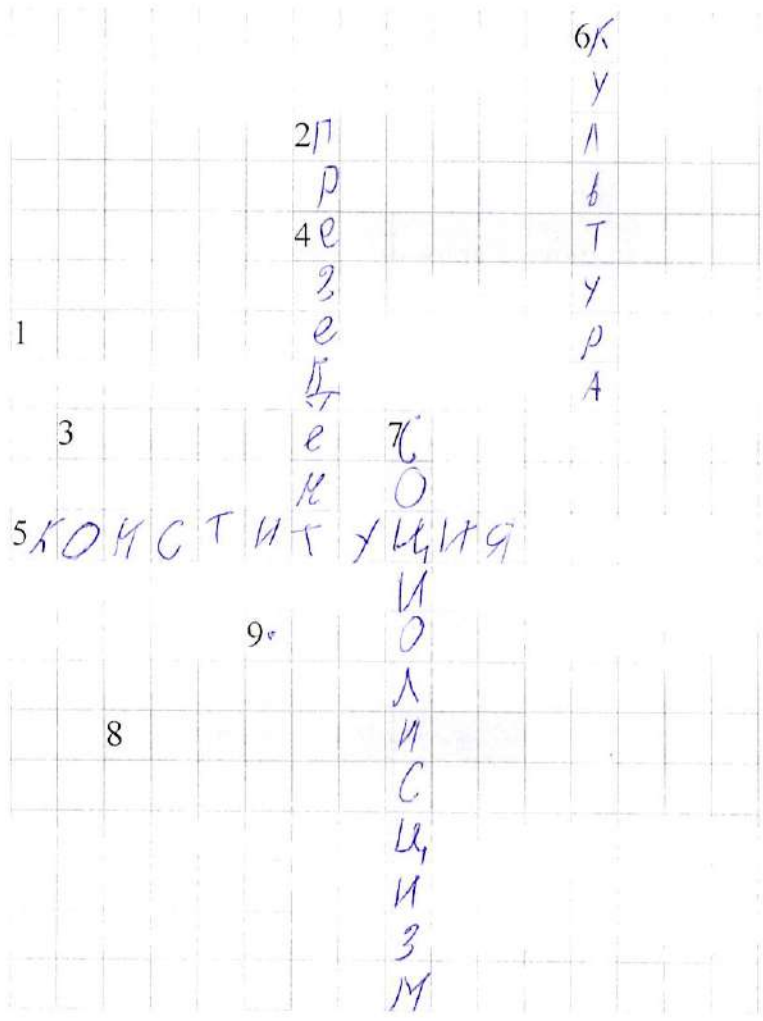 6КУЛЬТУРА
2Презедент
4
1
3
7СОЦИОЛИСЦИЗМ
5КОНСТИТУЦИЯ
9
8